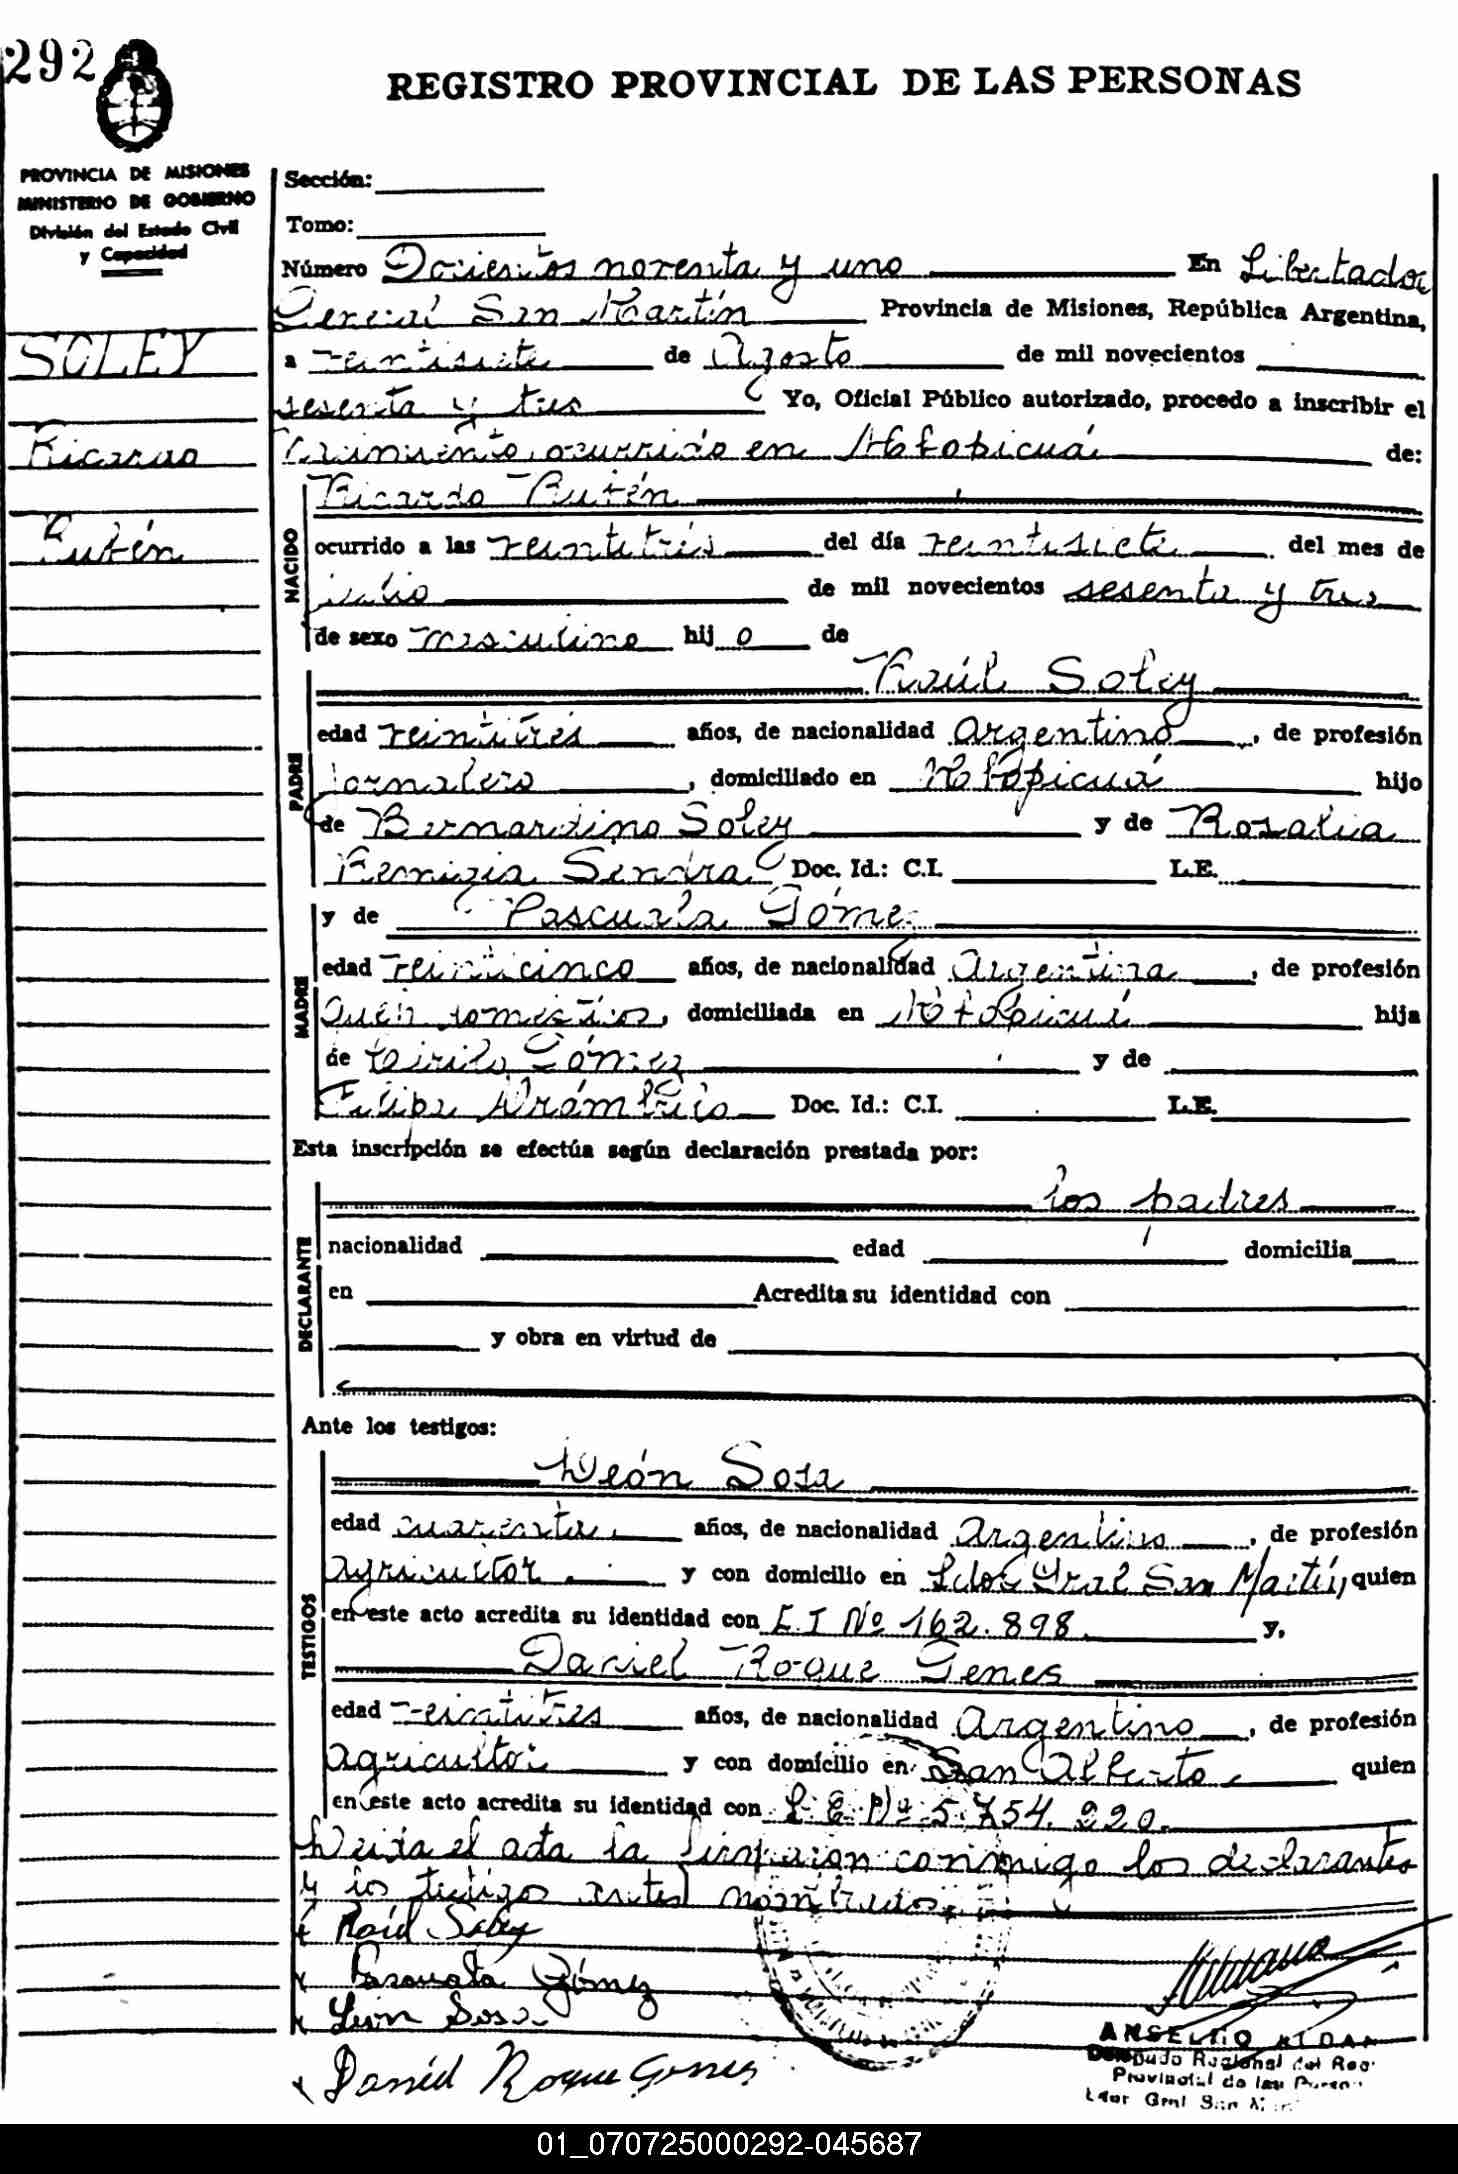 292
REGISTRO PROVINCIAL DE LAS PERSONAS
PROVINCIA DE MISIONES
MINISTERIO DE GOBIERNO
División del Estado Civil
y Capacidad
SOLEY
Ricardo
Rubén
Sección:
Tomo:
Número Docientos noventa y uno En Libertador
General San Martín Provincia de Misiones, República Argentina,
a veintisiete de Agosto de mil novecientos
sesenta y tres Yo, Oficial Público autorizado, procedo a inscribir el
nacimiento ocurrido en Mbopicuá de:
NACIDO
Ricardo Rubén
ocurrido a las veintitrés del día veintisiete del mes de
julio de mil novecientos sesenta y tres
de sexo masculino hijo de
PADRE
Raúl Soley
edad veintitrés años, de nacionalidad Argentino, de profesión
Jornalero, domiciliado en Mbopicuá hijo
de Bernardino Soley y de Rosalia
Remigia Sendra Doc. Id.: C.I. L.E.
MADRE
y de Pascuala Gómez
edad veinticinco años, de nacionalidad Argentina, de profesión
Queh domésticos, domiciliada en Mbopicuá hija
de Cirilo Gómez y de
Felipa Doc. Id.: C.I. L.E.
Esta inscripción se efectúa según declaración prestada por:
DECLARANTE
los padres
nacionalidad edad domicilia
en Acredita su identidad con
y obra en virtud de
Ante los testigos:
TESTIGOS
León Sosa
edad cuarenta años, de nacionalidad Argentino, de profesión
agricultor y con domicilio en Ldor Gral San Martín, quien
en este acto acredita su identidad con C.I Nº 162.898. y,
Daniel Roque Genes
edad veintitres años, de nacionalidad Argentino, de profesión
agricultor y con domicilio en San Alberto quien
en este acto acredita su identidad con L.E. Nº 5.754.220.
Leída el acta la firmaron conmigo los declarantes
y los testigos antes nombrados.
Raúl Soley
Pascuala Gómez
León Sosa
Daniel Roque Genes
ANSELMO
Delegado Regional del Reg.
Provincial de las Person
Ldor Gral San Mar
01_070725000292-045687